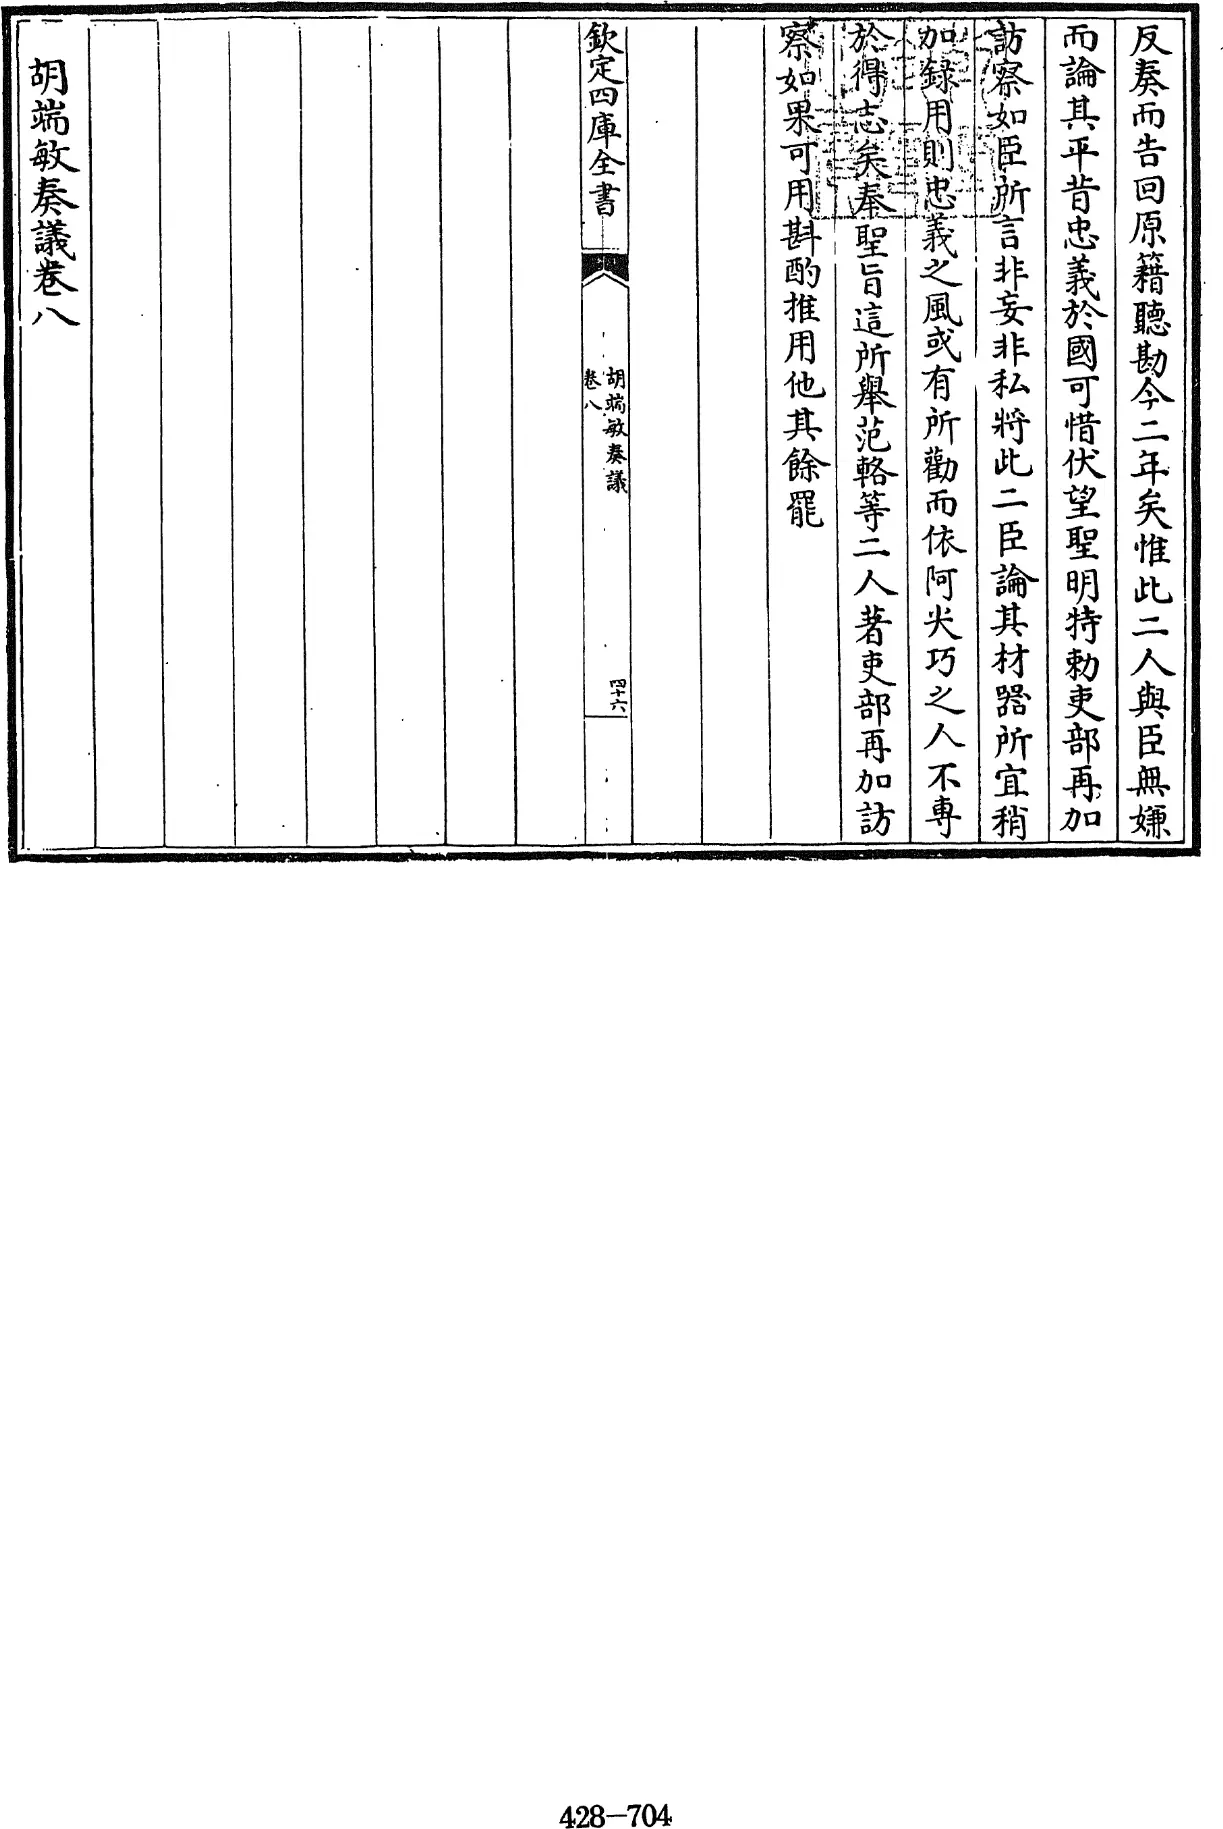 反奏而告回原籍聽勘今二年矣惟此二人與臣無嫌
而論其平昔忠義於國可惜伏望聖明特勅吏部再加
訪察如臣所言非妄非私將此二臣論其材器所宜稍
加録用則忠義之風或有所勸而依阿尖巧之人不專
於得志矣奉聖旨這所舉范輅等二人著吏部再加訪
察如果可用斟酌推用他其餘罷
欽定四庫全書
胡端敏奏議
卷八
四十六
胡端敏奏議卷八
428-704